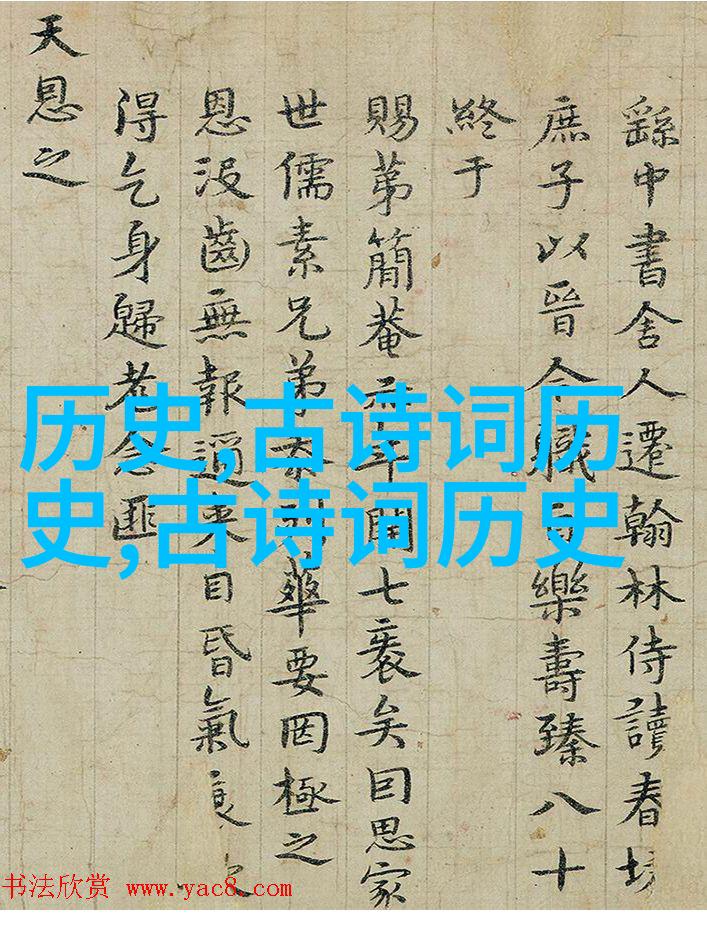 繇中書舍人遷翰林侍讀春坊
庶子以晉今職 樂壽臻八十
終于
賜第簡菴亦年開七袠矣囙思家
世儒素兄弟忝列華要罔極之
恩沒齒無報邇來目昏氣衰
得乞身歸老念匪
天恩之
历史,古诗词历
史,古诗词历史
书法欣赏 www.yac8.com